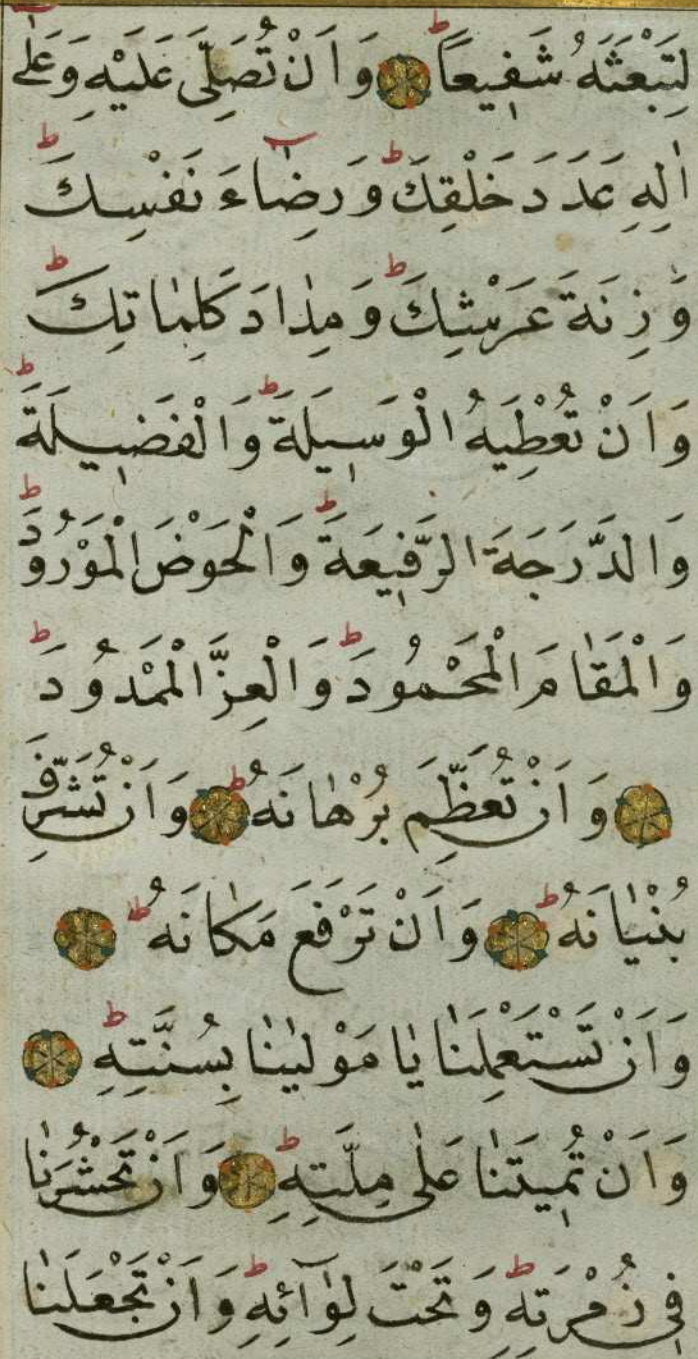 لِتَبْعَثَهُ شَفِيعًا ط وَاَنْ تُصَلِّىَ عَلَيْهِ وَعَلٰٓى
اٰلِهِ عَدَدَ خَلْقِكَ ط وَرِضَٓاءَ نَفْسِكَ ط
وَزِنَةَ عَرْشِكَ ط وَمِدٰادَ كَلِمٰاتِكَ ط
وَاَنْ تُعْطِيَهُ الْوَسِيلَةَ ط وَالْفَضِيلَةَ ط
وَالدَّرَجَةَ الرَّفِيعَةَ ط وَالْحَوْضَ الْمَوْرُودَ ط
وَالْمَقٰامَ الْمَحْمُودَ ط وَالْعِزَّ الْمَمْدُودَ ط
وَاَنْ تُعَظِّمَ بُرْهٰانَهُ ط وَاَنْ تُشَرِّفَ
بُنْيٰانَهُ ط وَاَنْ تَرْفَعَ مَكٰانَهُ ط
وَاَنْ تَسْتَعْمِلَنٰا يٰا مَوْلٰينٰا بِسُنَّتِهِ ط
وَاَنْ تُمِيتَنٰا عَلٰى مِلَّتِهِ ط وَاَنْ تَحْشُرَنٰا
فِى زُمْرَتِهِ ط وَتَحْتَ لِوَٓائِهِ ط وَاَنْ تَجْعَلَنٰا